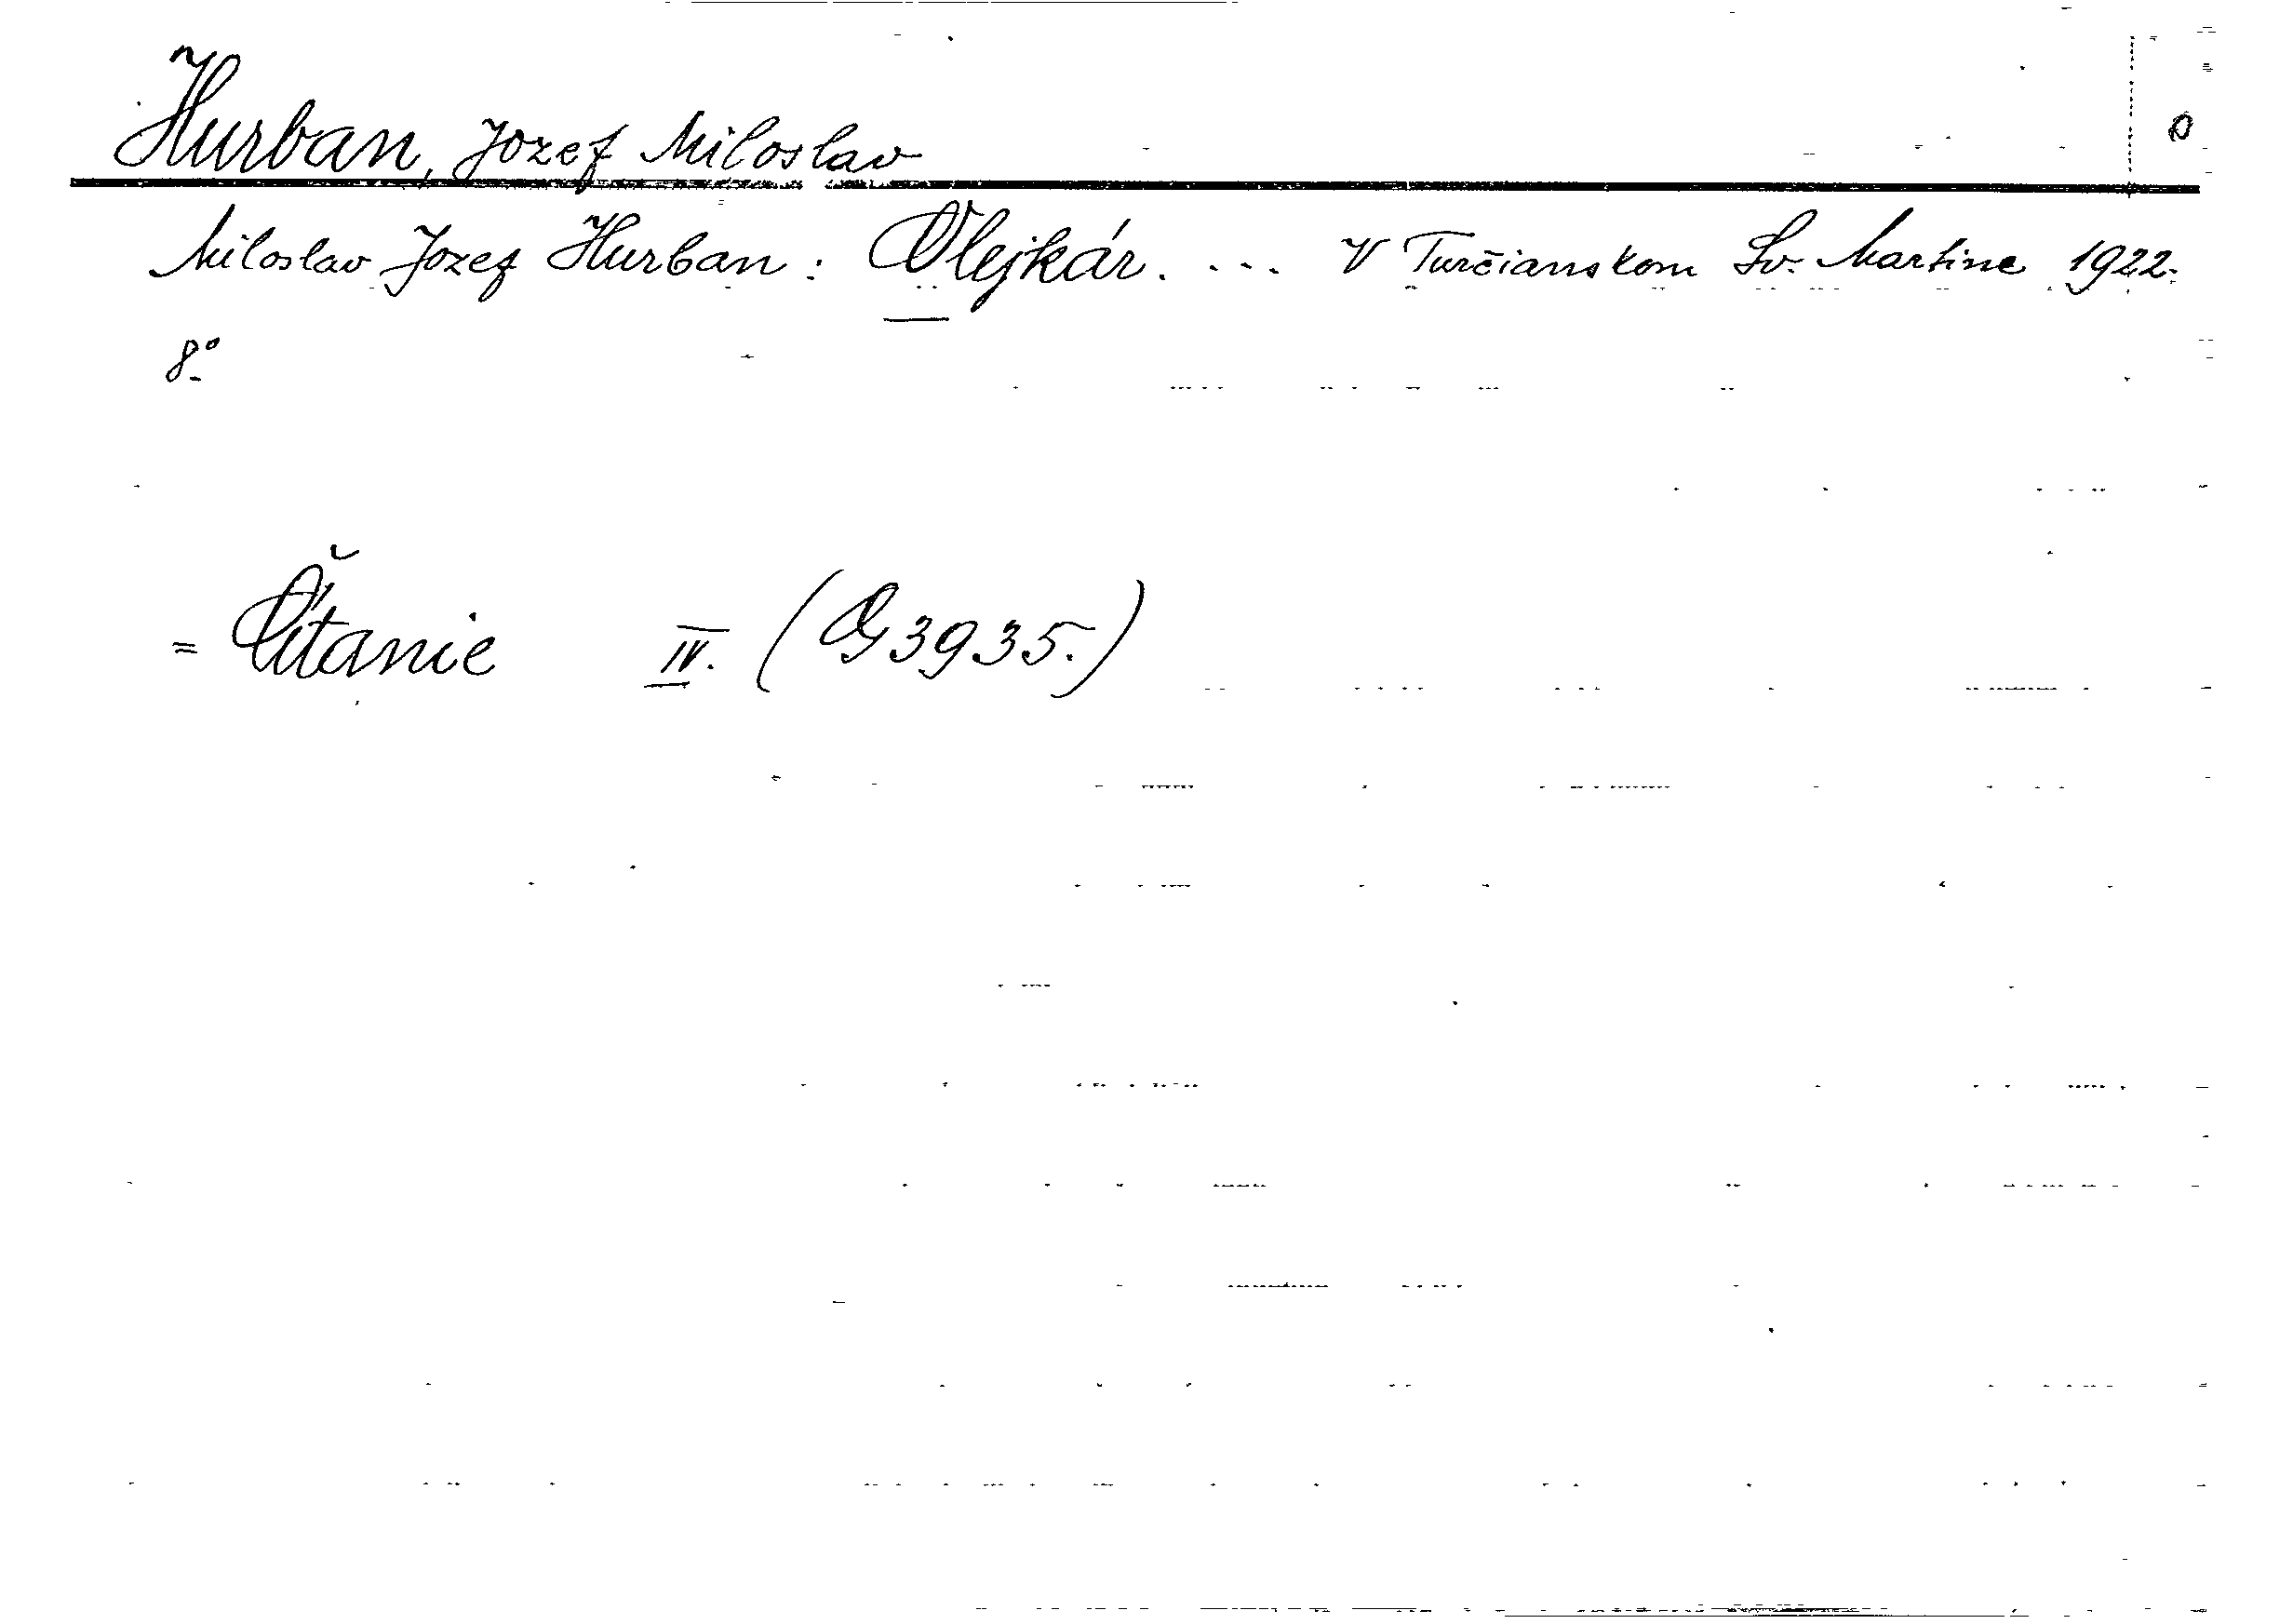 Hurban, Jozef Miloslav O
Miloslav Jozef Hurban: Olejkár. ... V Turčianskom Sv. Martine 1922.
8°
= Čítanie IV. (G 3935.)